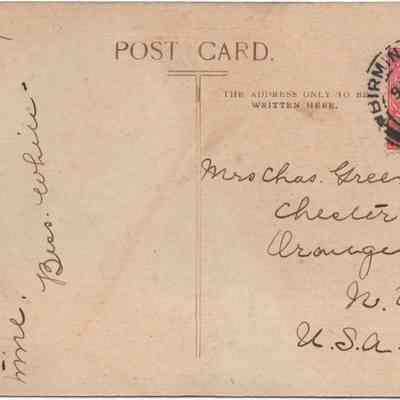 POST CARD.
THE ADDRESS ONLY TO BE
WRITTEN HERE.
BIRMIN
Mrs Chas. Green
Chester
Orange
N.
U.S.A.
time.
Bess. White.